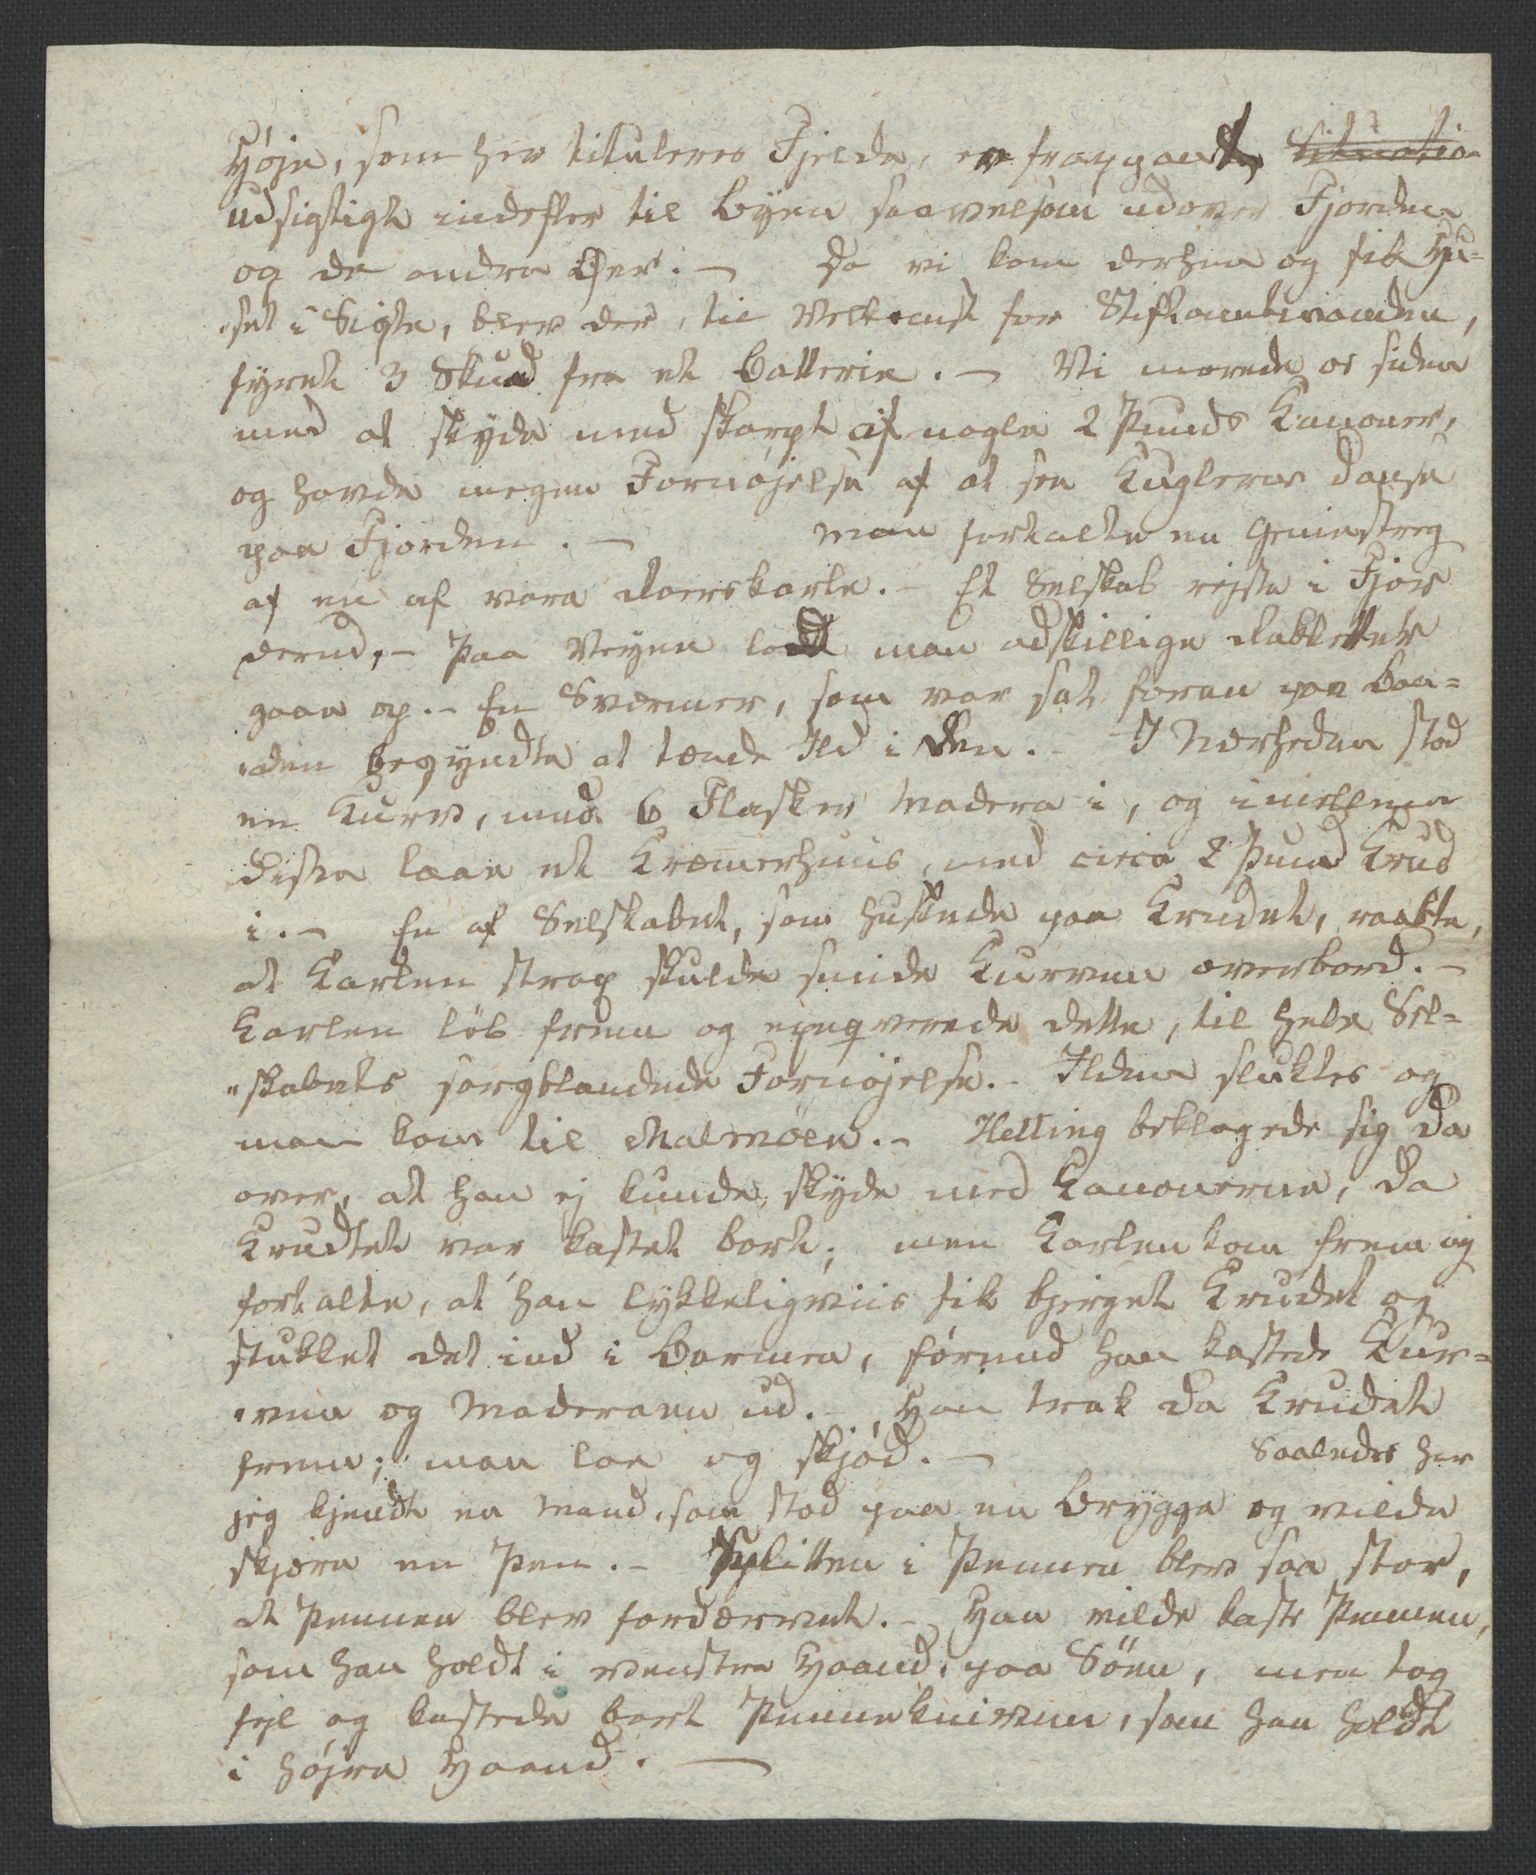 Høje, som her tituleres Fjelde, er frappant, Situatio-
udsigtigt indefter til Byen saavelsom udover Fjorden
og de andre Øer. — Da vi kom derhen og fik Hu-
„set i Sigte, blev der, til Velkomst for Stiftamtmanden,
fyret 3 Skud fra et Batterie. — Vi morede os siden
med at skyde med skarpt af nogle 2 Punds Kanoner,
og havde megen Fornøjelse af at see Kuglerne danse
paa Fjorden. — Man fortalte en Geniestreg
af en af vore Roerskarle. — Et Selskab rejste i Fjor
derud, — Paa Vejen lod man adskillige Raketter
gaae op. — En Sværmer, som var sat foran paa Baa-
„den begyndte at tænde Ild i den. — I Nærheden stod
en Kurv, med 6 Flasker Madera i, og imellem
disse laae et Kræmerhuus, med circa 2 Pund Krud
i. — En af Selskabet, som huskede paa Krudet, raabte,
at Karlen strax skulde smide Kurven overbord. —
Karlen løb frem og exeqverede dette, til hele Sel-
„skabets sorgblandede Fornøjelse. — Ilden sluktes og
man kom til Malmøen. — Hetting beklagede sig da
over, at han ej kunde skyde med Kanonerne, da
Krudtet var kastet bort; men Karlen kom frem og
fortalte, at han lykkeligviis fik bjerget Krudet og
stukket det ind i Barmen, førend han kastede Kur-
„ven og Maderaen ud. — Han trak da Krudet
frem; man loe og skjød. — Saaledes har
jeg kjendt en Mand, som stod paa en Brygge og vilde
skjære en Pen. — Splitten i Pennen blev saa stor,
at Pennen blev fordærvet. — Han vilde kaste Pennen,
som han holdt i venstre Haand, paa Søen, men tog
fejl og kastede bort Penneknivem, som han holdt
i højre Haand. —